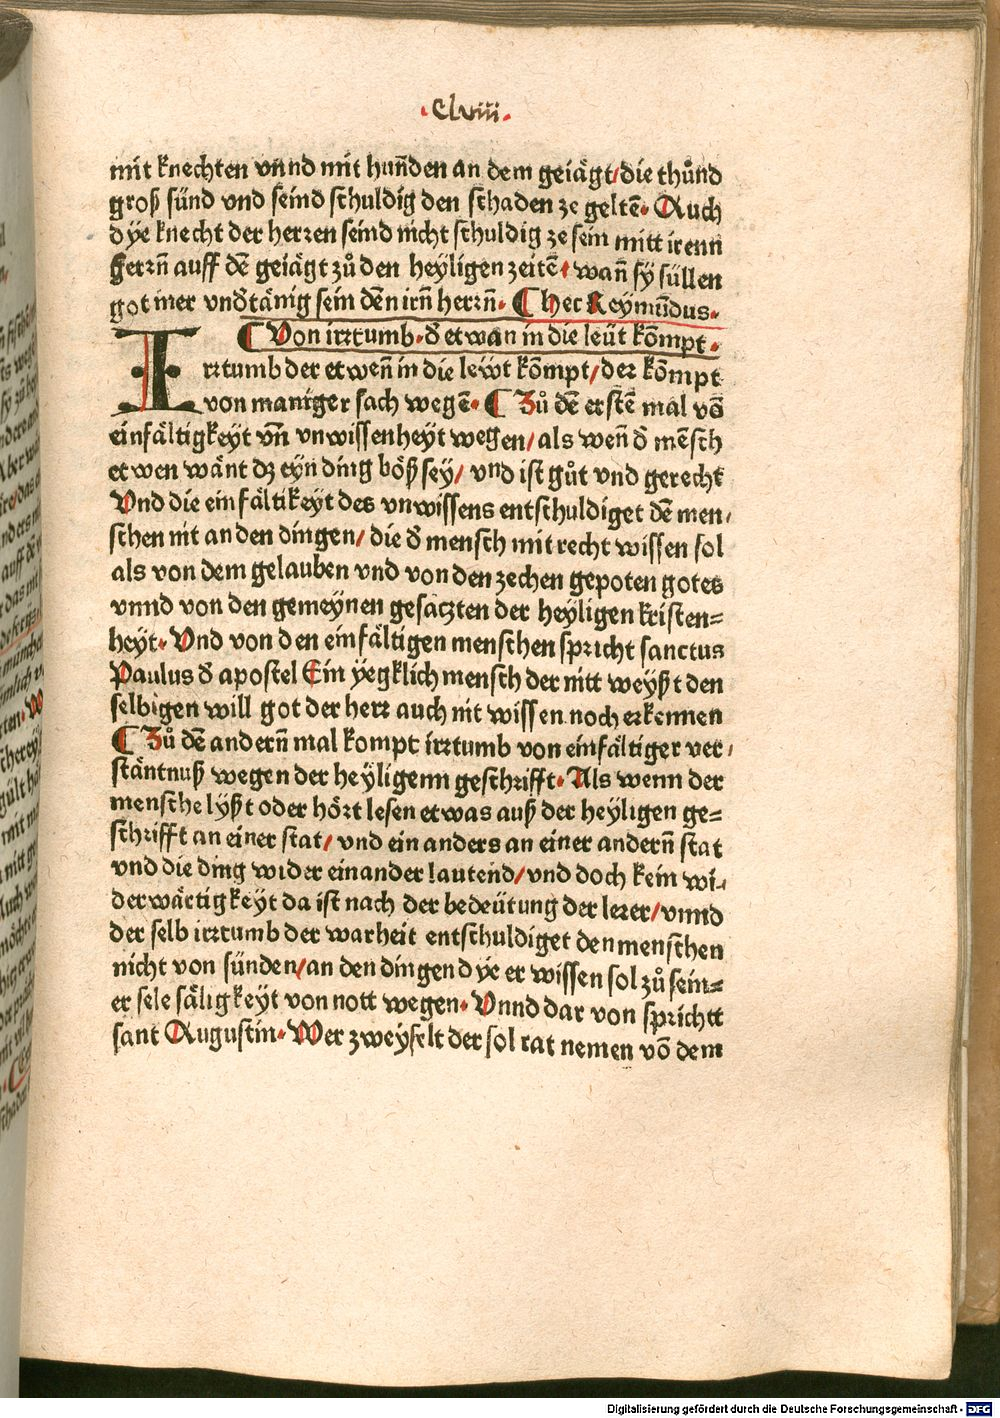 ·Clviii·
mit knechten vnnd mit hun̄den an dem geiägt/die thůnd
groß sünd vnd seind schuldig den schaden ze geltē· Auch
dye knecht der herren seind nicht schuldig ze sein mitt irenn
herrn̄ auff dē geiägt zů den heyligen zeitē· wan̄ sy süllen
got mer vnd̄tänig sein dēn irn̄ herrn̄· ¶ hec Reymūdus·
¶ Von irrtumb·d̄ etwan in die leüt kōmpt·
Irrtumb der etwen̄ in die lewt kōmpt/der kōmpt
von maniger sach wegē· ¶ Zů dē erstē mal vō
einfältigkeyt vn̄ vnwissenheyt wegen/als wen̄ d̄ mēsch
etwen wänt dz eyn ding böß sey/ vnd ist gůt vnd gerecht
Vnd die einfältikeyt des vnwissens entschuldiget dē men⸗
schen nit an den dingen/ die d̄ mensch mit recht wissen sol
als von dem gelauben vnd von den zechen gepoten gotes
vnnd von den gemeynen gesätzten der heyligen kristen⸗
heyt· Vnd von den einfältigen menschen spricht sanctus
Paulus d̄ apostel Ein yegklich mensch der nitt weyßt den
selbigen will got der herr auch nit wissen noch erkennen
¶ Zů dē andern̄ mal kompt irrtumb von einfältiger ver⸗
stäntnuß wegen der heyligenn geschrifft· Als wenn der
mensche lyßt oder hört lesen etwas auß der heyligen ge⸗
schrifft an einer stat/ vnd ein anders an einer andern̄ stat
vnd die ding wider einander lautend/vnd doch kein wi⸗
derwärtigkeyt da ist nach der bedeütung der lerer/vnnd
der selb irrtumb der warheit entschuldiget den menschen
nicht von sünden/an den dingen dye er wissen sol zů sein⸗
er sele säligkeyt von nott wegen· Vnnd dar von sprichtt
sant Augustin· Wer zweyfelt der sol rat nemen vō dem
Digitalisierung gefördert durch die Deutsche Forschungsgemeinschaft - DFG